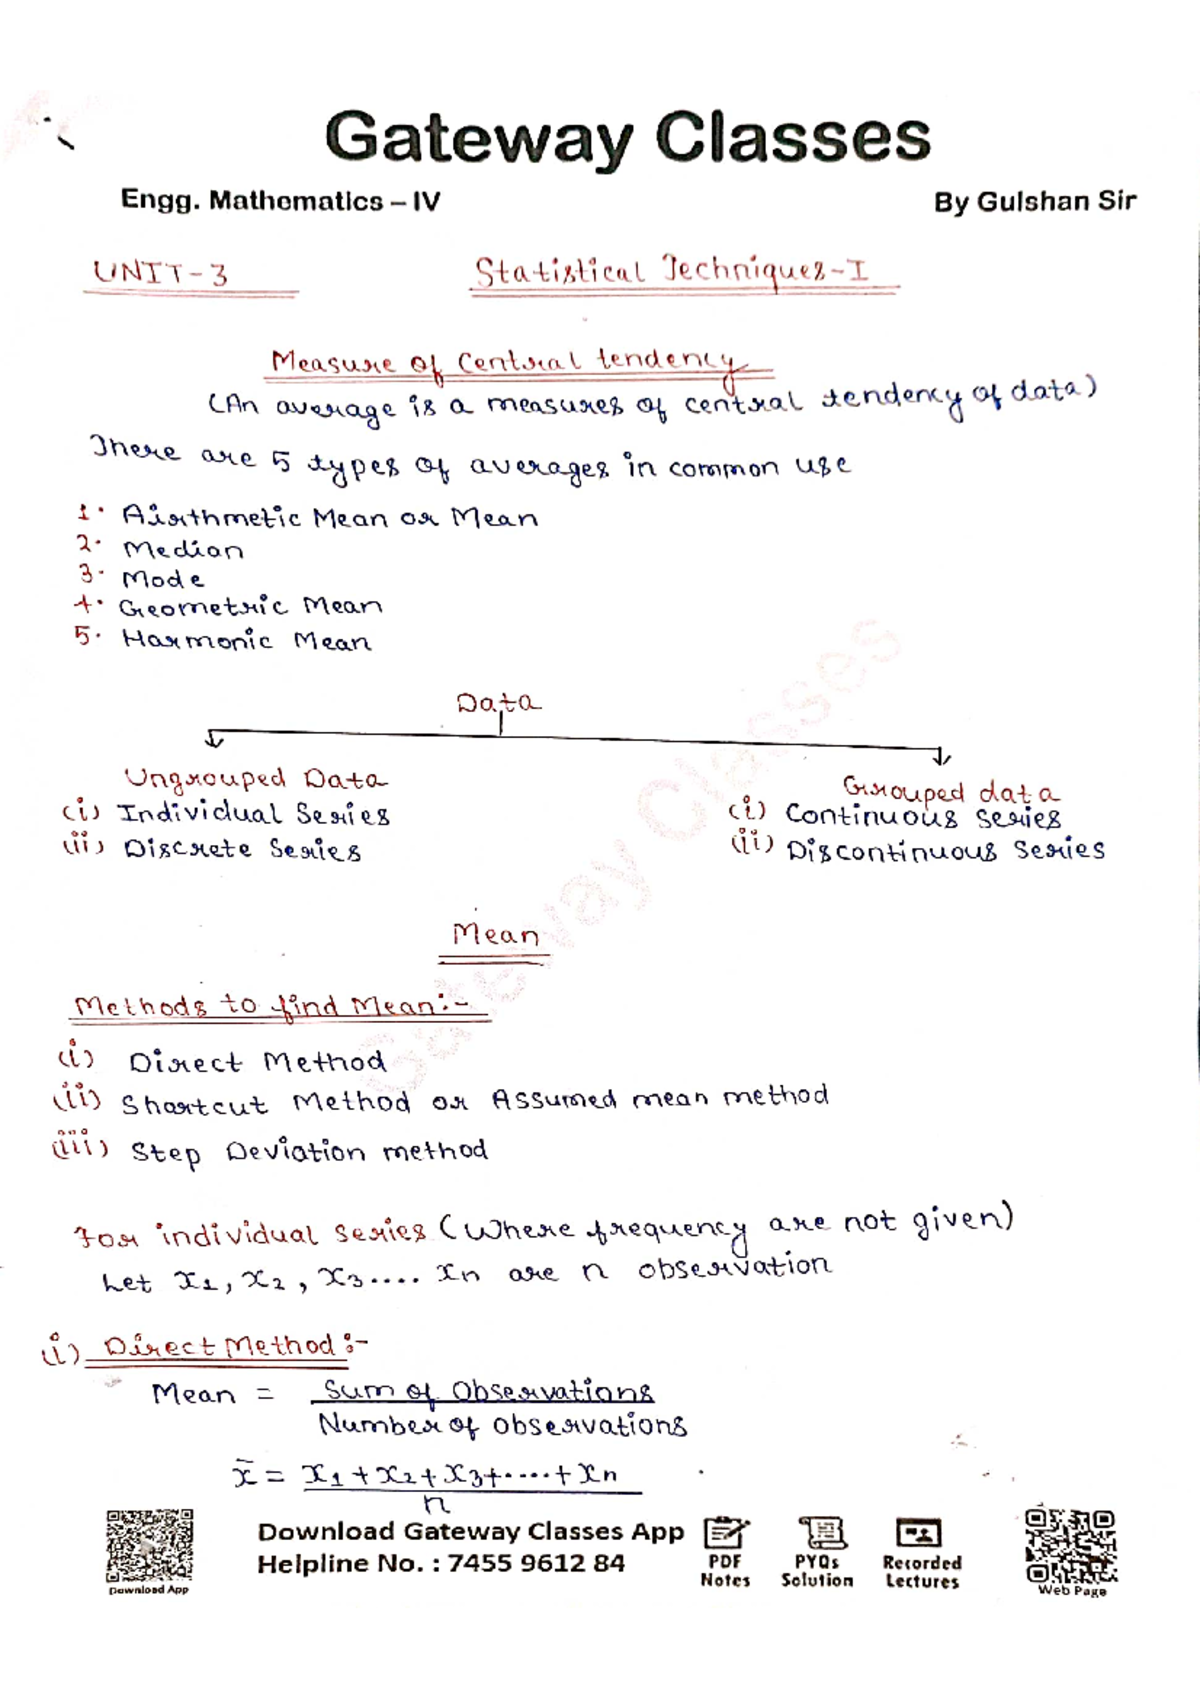 Gateway Classes
Engg. Mathematics – IV By Gulshan Sir
UNIT-3 Statistical Techniques-I
Measure of Central tendency
(An average is a measures of central tendency of data)
There are 5 types of averages in common use
1. Airthmetic Mean or Mean
2. Median
3. Mode
4. Geometric Mean
5. Harmonic Mean
Data
Ungrouped Data Grouped data
(i) Individual Series (i) Continuous series
(ii) Discrete Series (ii) Discontinuous Series
Mean
Methods to find Mean:-
(i) Direct Method
(ii) Shortcut Method or Assumed mean method
(iii) Step Deviation method
For individual series (Where frequency are not given)
Let x1, x2, x3.... xn are n observation
(i) Direct Method:-
Mean = Sum of Observations
Number of observations
x̄ = x1+x2+x3+.....+xn
n
Download Gateway Classes App
Helpline No. : 7455 9612 84
Download App
PDF Notes
PYQs Solution
Recorded Lectures
Web Page
Gateway Classes